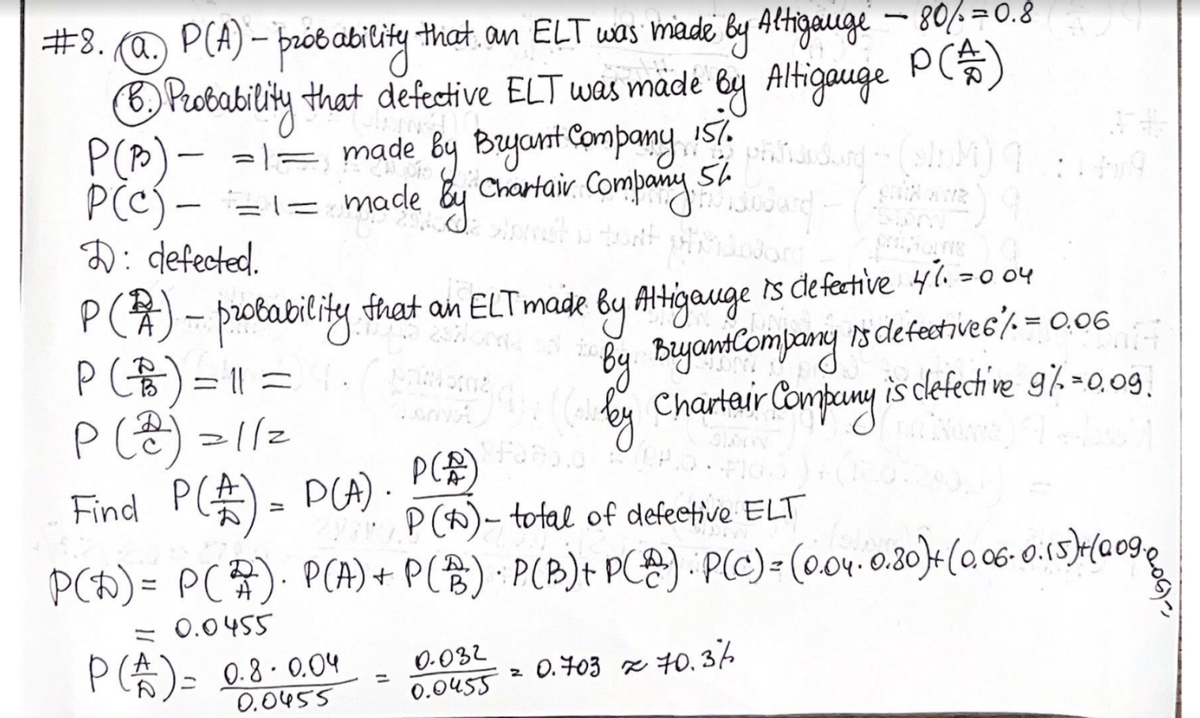 #8. (a.) P(A) - probability that an ELT was made by Altigauge - 80% = 0.8
(b.) Probability that defective ELT was made by Altigauge P(A/D)
P(B) - =1= made by Bryant Company 15%
P(C) - =1= made by Chartair Company 5%
D: defected.
P(D/A) - probability that an ELT made by Altigauge is defective 4% = 0.04
P(D/B) = 11 = by Bryant Company is defective 6% = 0.06
P(D/C) = 11 = by Chartair Company is defective 9% = 0.09.
Find P(A/D) = P(A) · P(D/A) / P(D) - total of defective ELT
P(D) = P(D/A) · P(A) + P(D/B) · P(B) + P(D/C) · P(C) = (0.04 · 0.80) + (0.06 · 0.15) + (0.09 · 0.05) =
= 0.0455
P(A/D) = 0.8 · 0.04 / 0.0455 = 0.032 / 0.0455 = 0.703 ≈ 70.3%